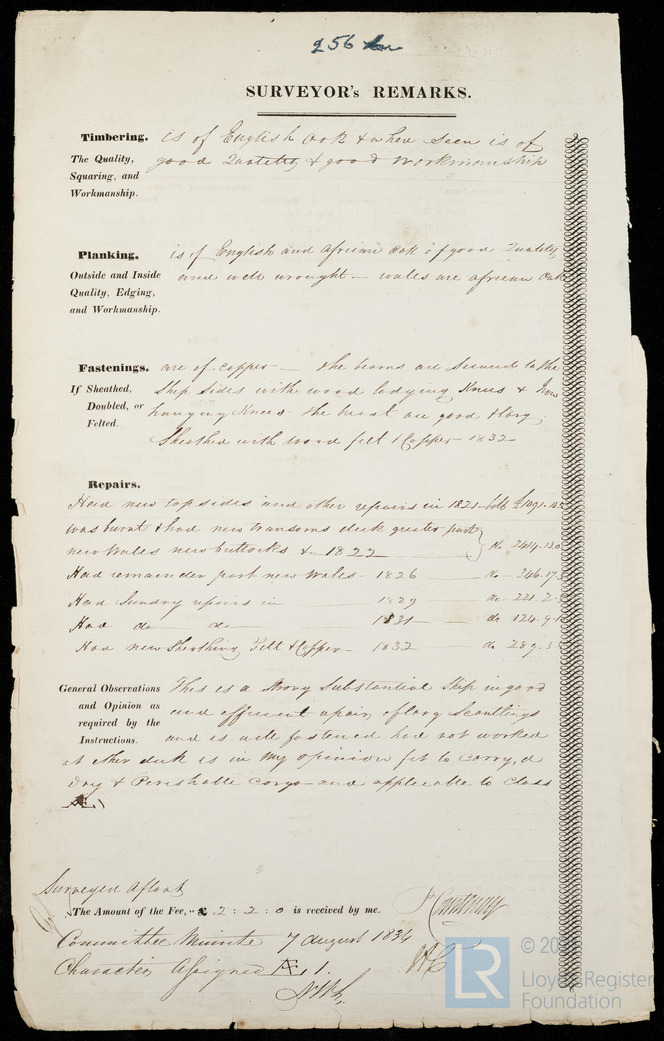 256
SURVEYOR's REMARKS.
Timbering. is of English Oak & where seen is of
The Quality, good Quality & good workmanship
Squaring, and
Workmanship.
Planking. is of English and African Oak of good Quality
Outside and Inside and well wrought - wales are african Oak
Quality, Edging,
and Workmanship.
Fastenings. are of copper - the beams are secured to the
If Sheathed, Ship sides with wood lodging Knees & Iron
Doubled, or hanging Knees the are good & long
Felted.
Sheathed with wood felt & Copper 1832
Repairs.
Had new topsides and other repairs in 1821
was burnt & had new transoms deck greater part
new wales new buttocks & 1822 do 2414.13.0
Had remainder part new Wales - 1826 do 346.17
Had Sundry repairs in 1829 do 221.2
Had do do 1831 do 124.9
Had new Sheathing Felt & Copper - 1832 do 289.3
General Observations This is a Strong Substantial Ship in good
and Opinion as and efficient repair, of long Scantlings
required by the and is well fastened had not worked
Instructions.
at Her deck is in my opinion fit to carry, a
Dry & Perishable Cargo - and applicable to Class
Æ 1
Surveyed afloat
The Amount of the Fee, £ 2 : 2 : 0 is received by me. Courtenay
Committee Minute 7 August 1834
Character Assigned Æ 1.
© 20
LR
Lloyd's Register
Foundation